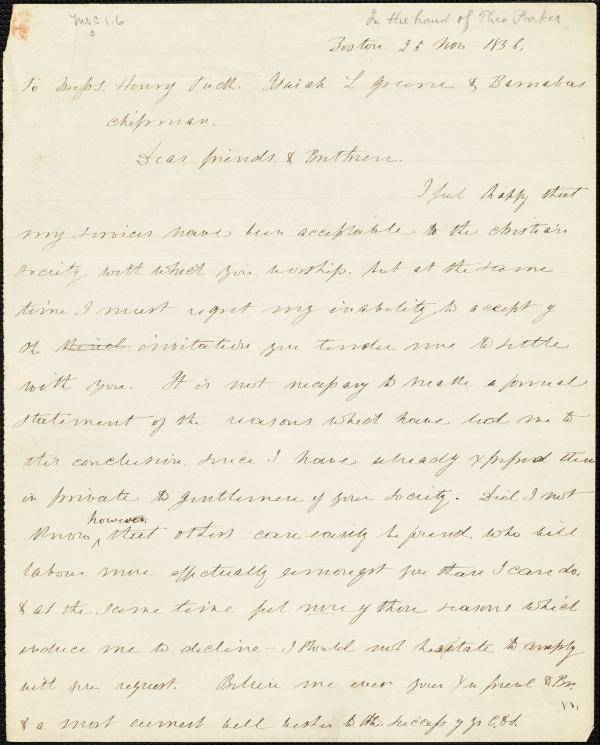 Ms C 1.6
In the hand of Theo Parker
Boston 25 Nov 1836.
To Messrs. Henry Tuck. Isaiah L Greene & Barnabas
Chipman.
Dear friends & Brethren.
I feel happy that
my services have been acceptable to the christian
society with which you worship. but at the same
time I must regret my inability to accept of
the invitation you tender me to settle
with you. It is not necessary to make a formal
statement of the reasons which have led me to
this conclusion. since I have already expressed them
in private to gentlemen of your society. Did I not
know however that others can easily be found. who will
labour more effectually amongst you than I can do.
& at the same time feel none of those reasons which
induce me to decline — I should not hesitate to comply
with your request. Believe me ever your friend & Br.
& a most earnest well wisher to the success of yr C. & S.